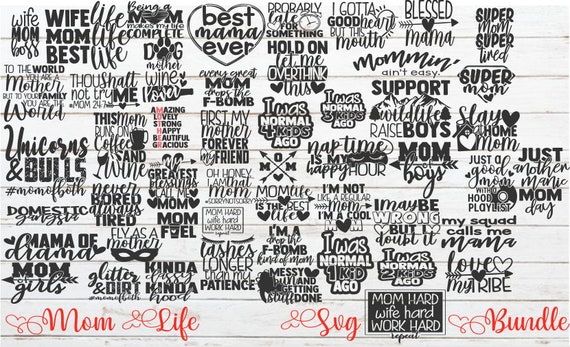 wife
MOM
boss
WIFE
MOM
BEST
life
LIKE
life
Being a
MOM
makes my life
COMPLETE
best
mama
ever
PROBABLY
late FOR
SOMETHING
I GOTTA
good heart
BUT this
MOUTH
BLESSED
mama
SUPER
MOM
SUPER
tired
DOG
mother
HOLD ON
LET me
OVERTHINK
this
mommin'
ain't easy.
TO THE WORLD
YOU ARE A
Mother
BUT TO YOUR FAMILY
YOU ARE THE
World
THOU
shalt
not try
ME
MOM 24:7
wine
every great
MOM
drops the
F-BOMB
SUPPORT
wildlife
RAISE BOYS
SUPER
mom
THIS MOM
RUNS ON
COFFEE
AND
wine
AMAZING
LOVELY
STRONG
HAPPY
BEAUTIFUL
GRACIOUS
FIRST MY
mother
FOREVER
my
FRIEND
I was
NORMAL
3 kids
AGO
I was
NORMAL
4 kids
AGO
Slay
at
HOME
Mom
Unicorns
& BULLS
#momofboth
MOM
naptime
IS MY
happy
HOUR
MOM
of
boys
JUST A
good
mom
WITH A
HOOD
PLAYLIST
JUST
another
manic
MOM
DAY
GREATEST
blessings
call me
MOM
OH HONEY,
I am that
mom
#SORRYNOTSORRY
DOMESTIC
never
BORED
always
TIRED
MOM
FUEL
MOM HARD
wife hard
WORK HARD
repeat
MOM life
IS THE BEST
life
I'M NOT
LIKE A REGULAR
mom
I'M A COOL
MOM
I MAY BE
WRONG
BUT I
doubt it
my squad
calls me
mama
MAMA OF
DRAMA
FLY AS A
mother
lashes
LONGER
than my
PATIENCE
I'M A
drop the
F-BOMB
kind of mom
I was
NORMAL
1 kid
AGO
I was
NORMAL
2 kids
AGO
love
my TRIBE
MOM
of
girls
glitter
& DIRT
#momofboth
KINDA
CLASSY
KINDA
HOOD
MESSY
bun and
GETTING
stuff
DONE
MOM HARD
wife hard
WORK HARD
repeat
Mom Life Svg Bundle